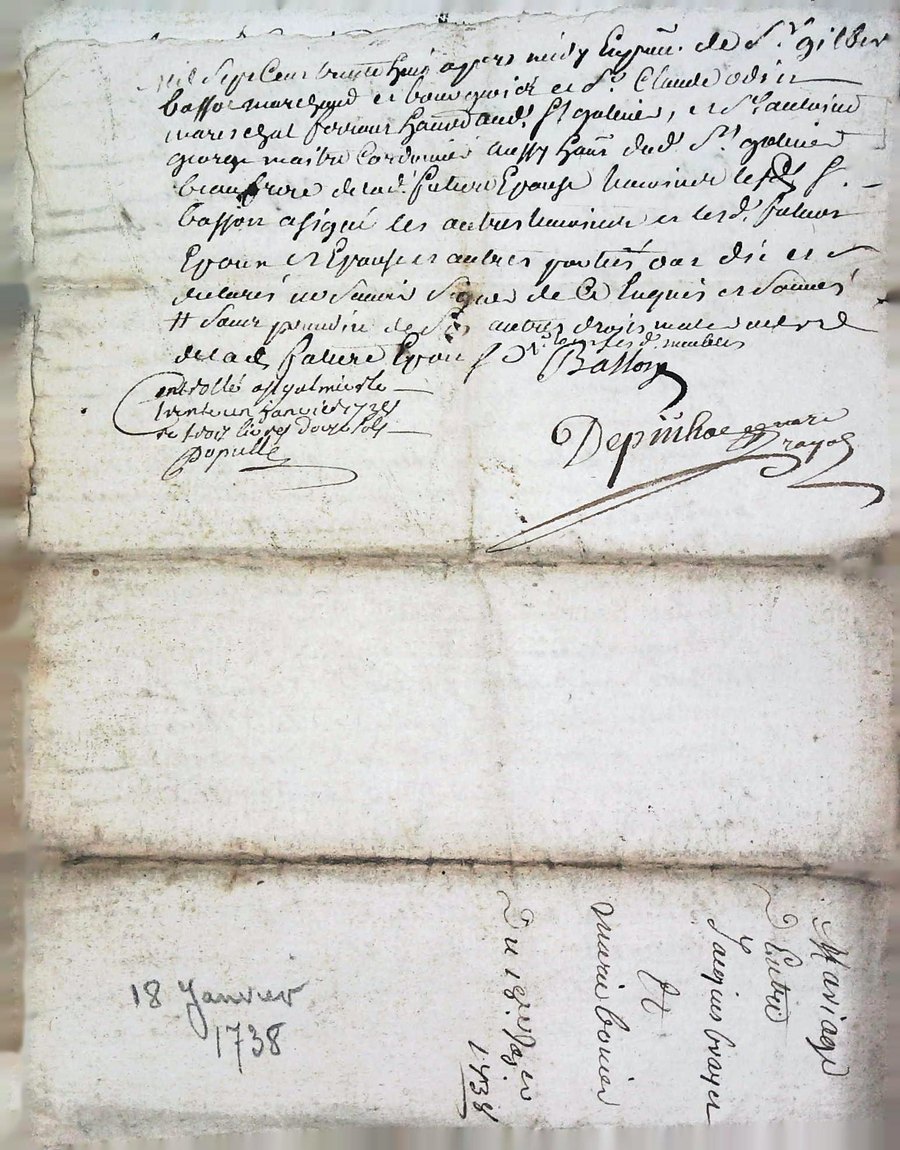 mil sept cens trente huit apprs midy En pnce. de Sr. gilber
basson marchand et bourgeois et Sr. Claude odin
mareschal ferrour habt. aud. St galmier, et Sr. antoine
george maitre Cordonnier aussy habt. dud. St. galmier
beaufrere de lad. future Epouse temoins S.
basson a signé les autres temoins et lesd. futurs
Epoux et Epouse et autres parties ont dit et
declarés ne scavoir signer de Ce Enquis et Sommés
# Sans de Ses autres droits
de lad. future Epouse
Basson
Controllé a St galmier le
trente un janvier 1738
Re trois livres douze sols
Populle
Depiuhac notaire
Royal
Mariage
D'Entre
Jacques brayer
Et
marie bonier
Du 18e. Janv. er
1738
18 Janvier
1738